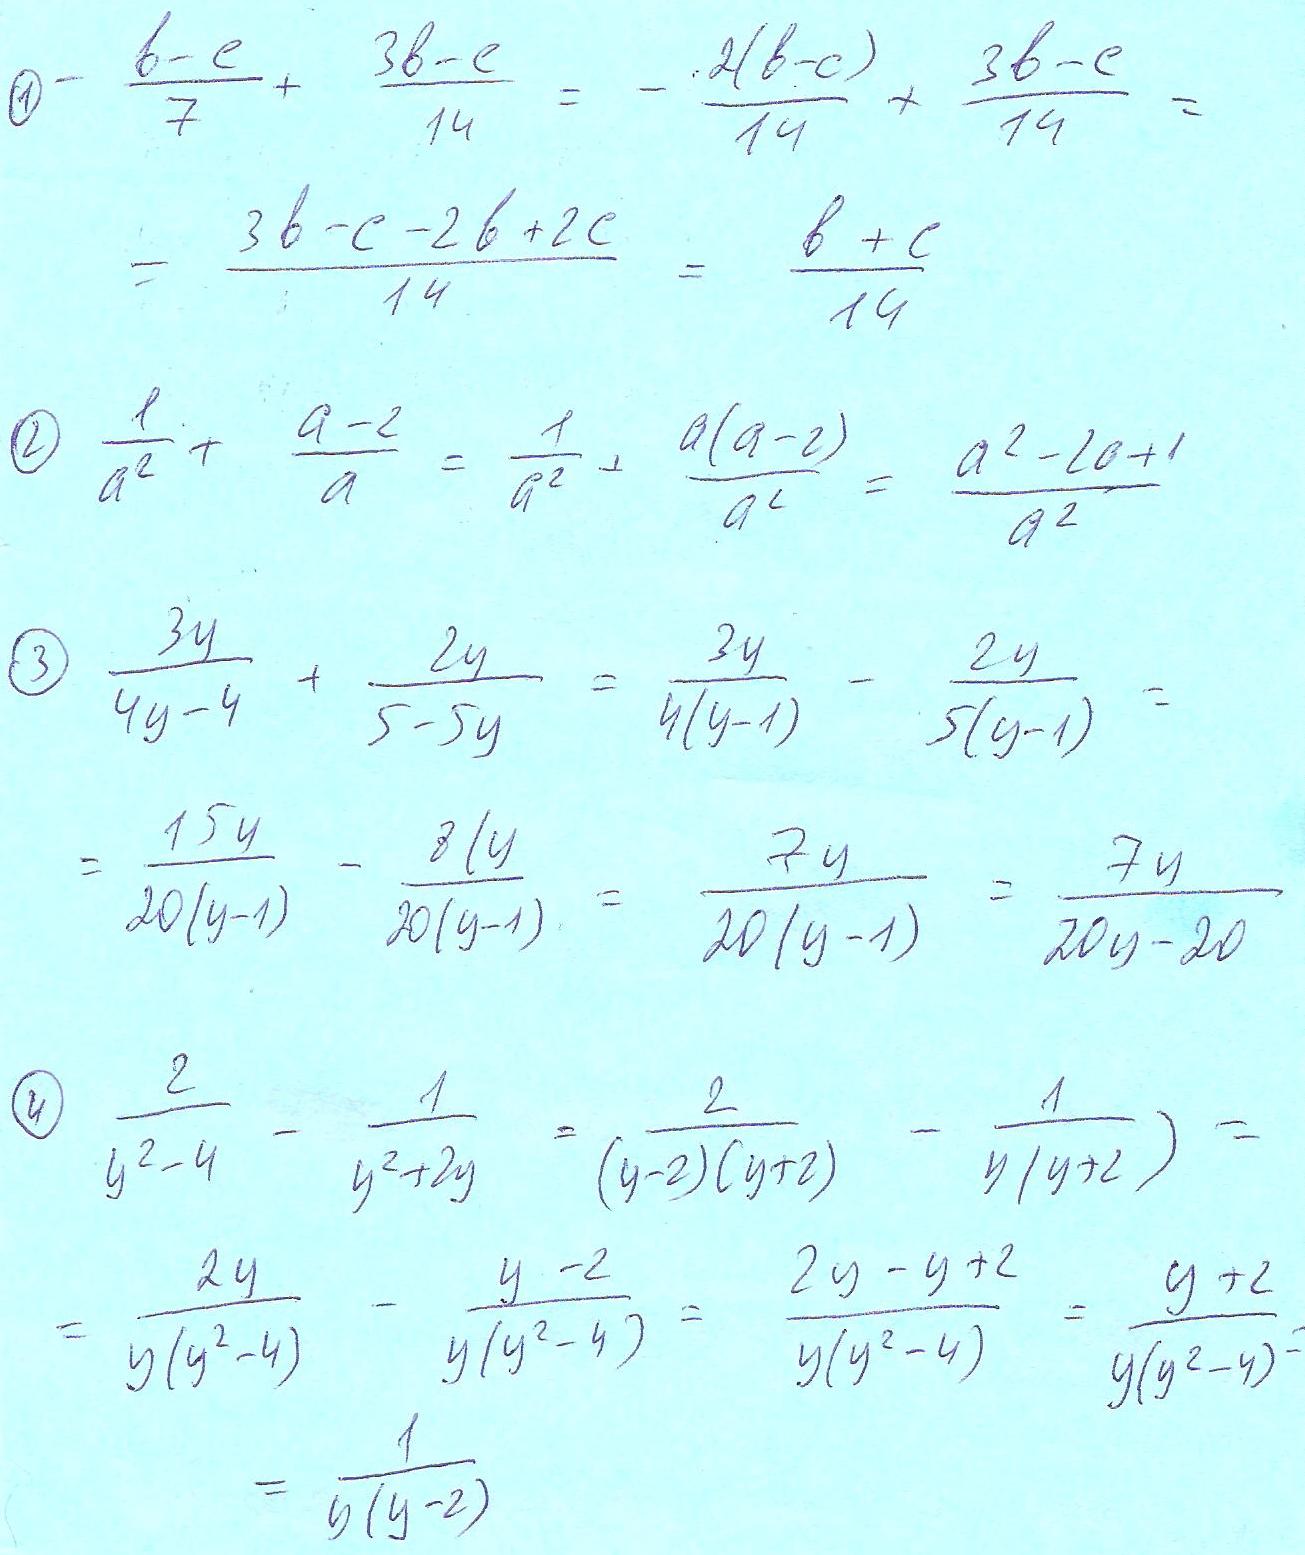 ① - (b-c)/7 + (3b-c)/14 = - 2(b-c)/14 + (3b-c)/14 =
= (3b-c-2b+2c)/14 = (b+c)/14
② 1/a² + (a-2)/a = 1/a² + a(a-2)/a² = (a²-2a+1)/a²
③ 3y/(4y-4) + 2y/(5-5y) = 3y/(4(y-1)) - 2y/(5(y-1)) =
= 15y/(20(y-1)) - 8(y/(20(y-1)) = 7y/(20(y-1)) = 7y/(20y-20)
④ 2/(y²-4) - 1/(y²+2y) = 2/((y-2)(y+2)) - 1/(y(y+2)) =
= 2y/(y(y²-4)) - (y-2)/(y(y²-4)) = (2y-y+2)/(y(y²-4)) = (y+2)/(y(y²-4)) =
= 1/(y(y-2))